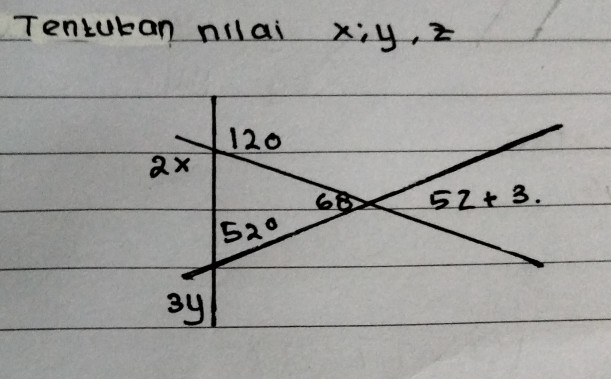 Tentukan nilai x; y, z
120
2x
68
5z + 3.
52°
3y